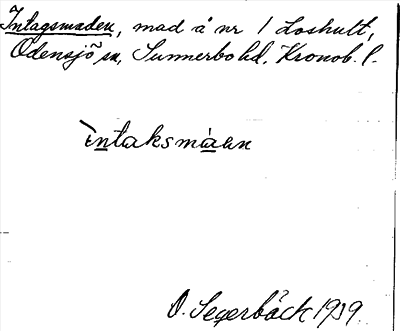 Intagsmaden, mad å nr 1 Loshult,
Odensjö sn, Sunnerbo hd. Kronob. l.
intaksmáan
O. Segerbäck 1939.